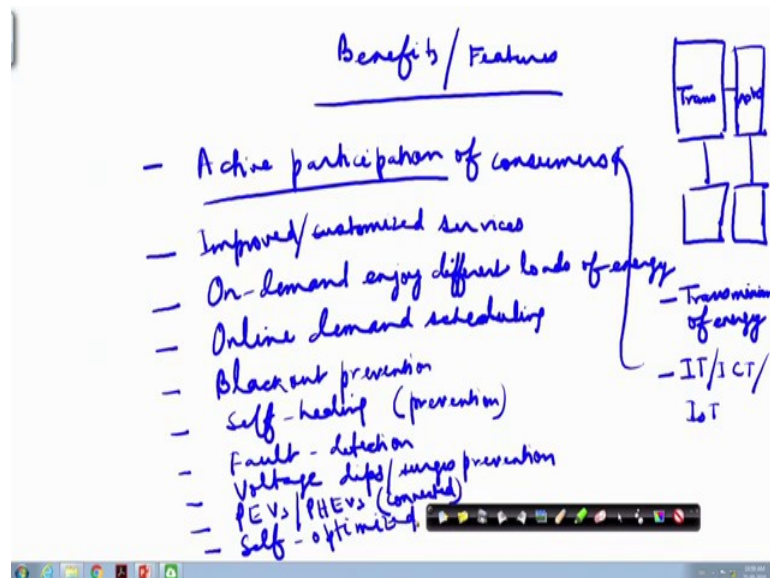 Benefits/Features
- Active participation of consumers
- Improved/customized services
- On-demand enjoy different loads of energy
- Online demand scheduling
- Blackout prevention
- Self-healing (prevention)
- Fault-detection
- Voltage dips/surges prevention
- PEVs/PHEVs (connected)
- Self-optimized
Trans
- Transmission of energy
- IT/ICT/
IoT